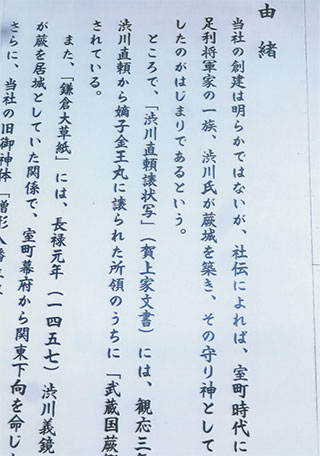 由緒
当社の創建は明らかではないが、社伝によれば、室町時代に
足利将軍家の一族、渋川氏が蕨城を築き、その守り神として
したのがはじまりであるという。
ところで、「渋川直頼譲状写」（賀上家文書）には、観応三
渋川直頼から嫡子金王丸に譲られた所領のうちに「武蔵国蕨
されている。
また、「鎌倉大草紙」には、長禄元年（一四五七）渋川義鏡
が蕨を居城としていた関係で、室町幕府から関東下向を命じ
さらに、当社の旧御神体「僧形八幡